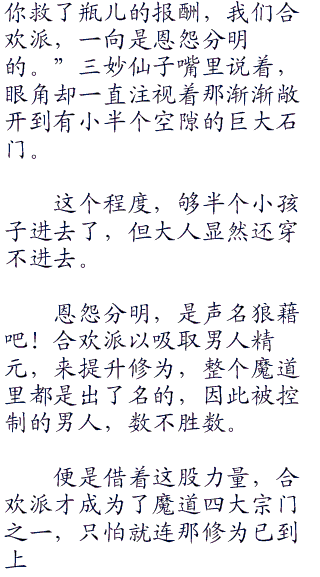 你救了瓶儿的报酬，我们合
欢派，一向是恩怨分明
的。”三妙仙子嘴里说着，
眼角却一直注视着那渐渐敞
开到有小半个空隙的巨大石
门。
这个程度，够半个小孩
子进去了，但大人显然还穿
不进去。
恩怨分明，是声名狼藉
吧！合欢派以吸取男人精
元，来提升修为，整个魔道
里都是出了名的，因此被控
制的男人，数不胜数。
便是借着这股力量，合
欢派才成为了魔道四大宗门
之一，只怕就连那修为已到
上